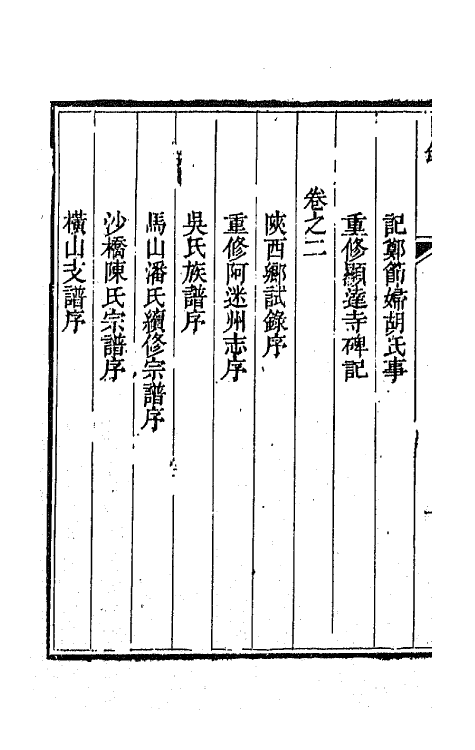 記鄭節婦胡氏事
重修顯達寺碑記
卷之二
陝西鄉試錄序
重修阿迷州志序
吳氏族譜序
馬山潘氏續修宗譜序
沙橋陳氏宗譜序
橫山支譜序